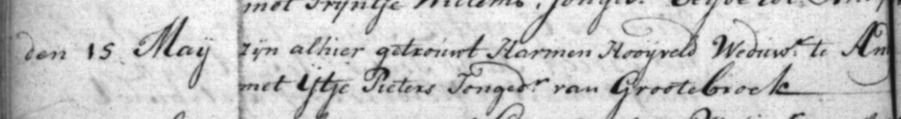 met Trijntje Willems, Jonged.r Beyde
den 15 Maÿ zyn alhier getrouwt Harmen Hooyveld Weduw.r te An
met Ytje Pieters Jonged.r van Grootebroek